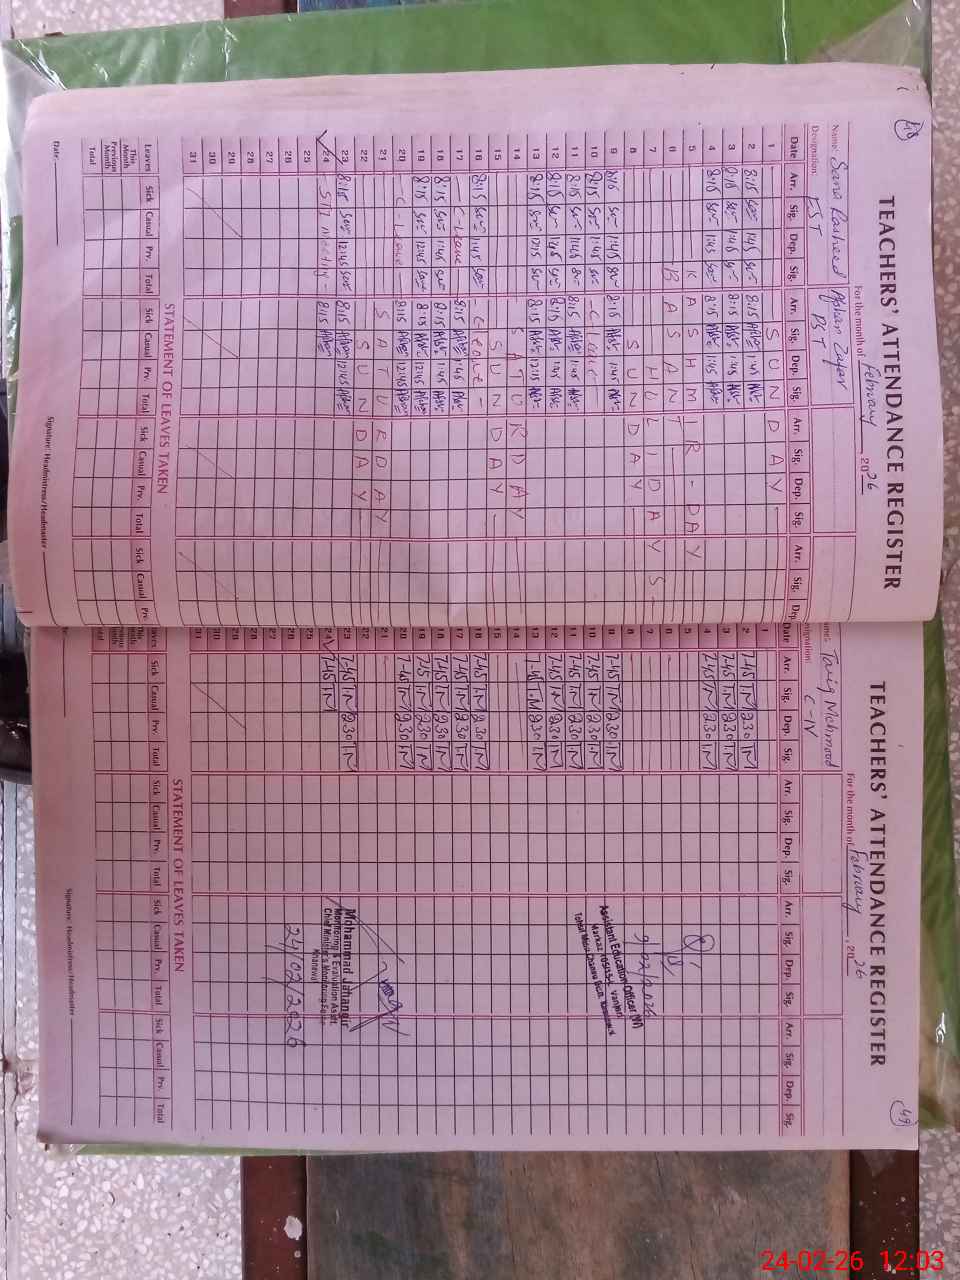 48
TEACHERS' ATTENDANCE REGISTER
For the month of February 2026
Name: Sana Rasheed Afshan Zafar
Designation: EST PST
Date Arr. Sig. Dep. Sig. Arr. Sig. Dep. Sig. Arr. Sig. Dep. Sig. Arr. Sig. Dep.
1 SUNDAY
2 8:15 1:45 8:15 1:45
3 8:15 1:45 8:15 1:45
4 8:15 1:45 8:15 1:45
5 KASHMIR-DAY
6 BASANT
7 HOLIDAYS
8 SUNDAY
9 8:15 1:45 8:15 1:45
10 8:15 1:45 -C-Leave-
11 8:15 1:45 8:15 1:45
12 8:15 1:45 8:15 1:45
13 8:15 12:15 8:15 12:15
14 SATURDAY
15 SUNDAY
16 8:15 1:45 -C-Leave-
17 -C-Leave- 8:15 1:45
18 8:15 1:45 8:15 1:45
19 8:15 12:45 8:15 12:45
20 -C-Leave- 8:15 12:45
21 SATURDAY
22 SUNDAY
23 8:15 12:45 8:15 12:45
24
25
26
27
28
29
30
31
STATEMENT OF LEAVES TAKEN
Leaves Sick Casual Prv. Total Sick Casual Prv. Total Sick Casual Prv. Total Sick Casual Prv.
This Month
Previous Month
Total
Date
Signature: Headmistress/Headmaster
49
TEACHERS' ATTENDANCE REGISTER
For the month of February, 2026
Tariq Mehmood
C-IV
Date Arr. Sig. Dep. Sig. Arr. Sig. Dep. Sig. Arr. Sig. Dep. Sig. Arr. Sig. Dep. Sig.
1
2 7-45 TM 2:30 TM
3 7-45 TM 2:30 TM
4 7-45 TM 2:30 TM
5
6
7
8
9 7-45 TM 2:30 TM
10 7-45 TM 2:30 TM
11 7-45 TM 2:30 TM
12 7-45 TM 2:30 TM
13 7-45 TM 2:30 TM
14
15
16 7-45 TM 2:30 TM
17 7-45 TM 2:30 TM
18 7-45 TM 2:30 TM
19 7-45 TM 2:30 TM
20 7-45 TM 2:30 TM
21
22
23 7-45 TM 2:30 TM
24 7-45 TM
25
26
27
28
29
30
31
9/02/2026
Assistant Education Officer (M)
Mohammad Jahangir
Monitoring & Evaluation Asstt.
Chief Minister's Monitoring Force
Khanewal
24/02/2026
STATEMENT OF LEAVES TAKEN
Sick Casual Prv. Total Sick Casual Prv. Total Sick Casual Prv. Total Sick Casual Prv. Total
Signature: Headmistress/Headmaster
24-02-26 12:03